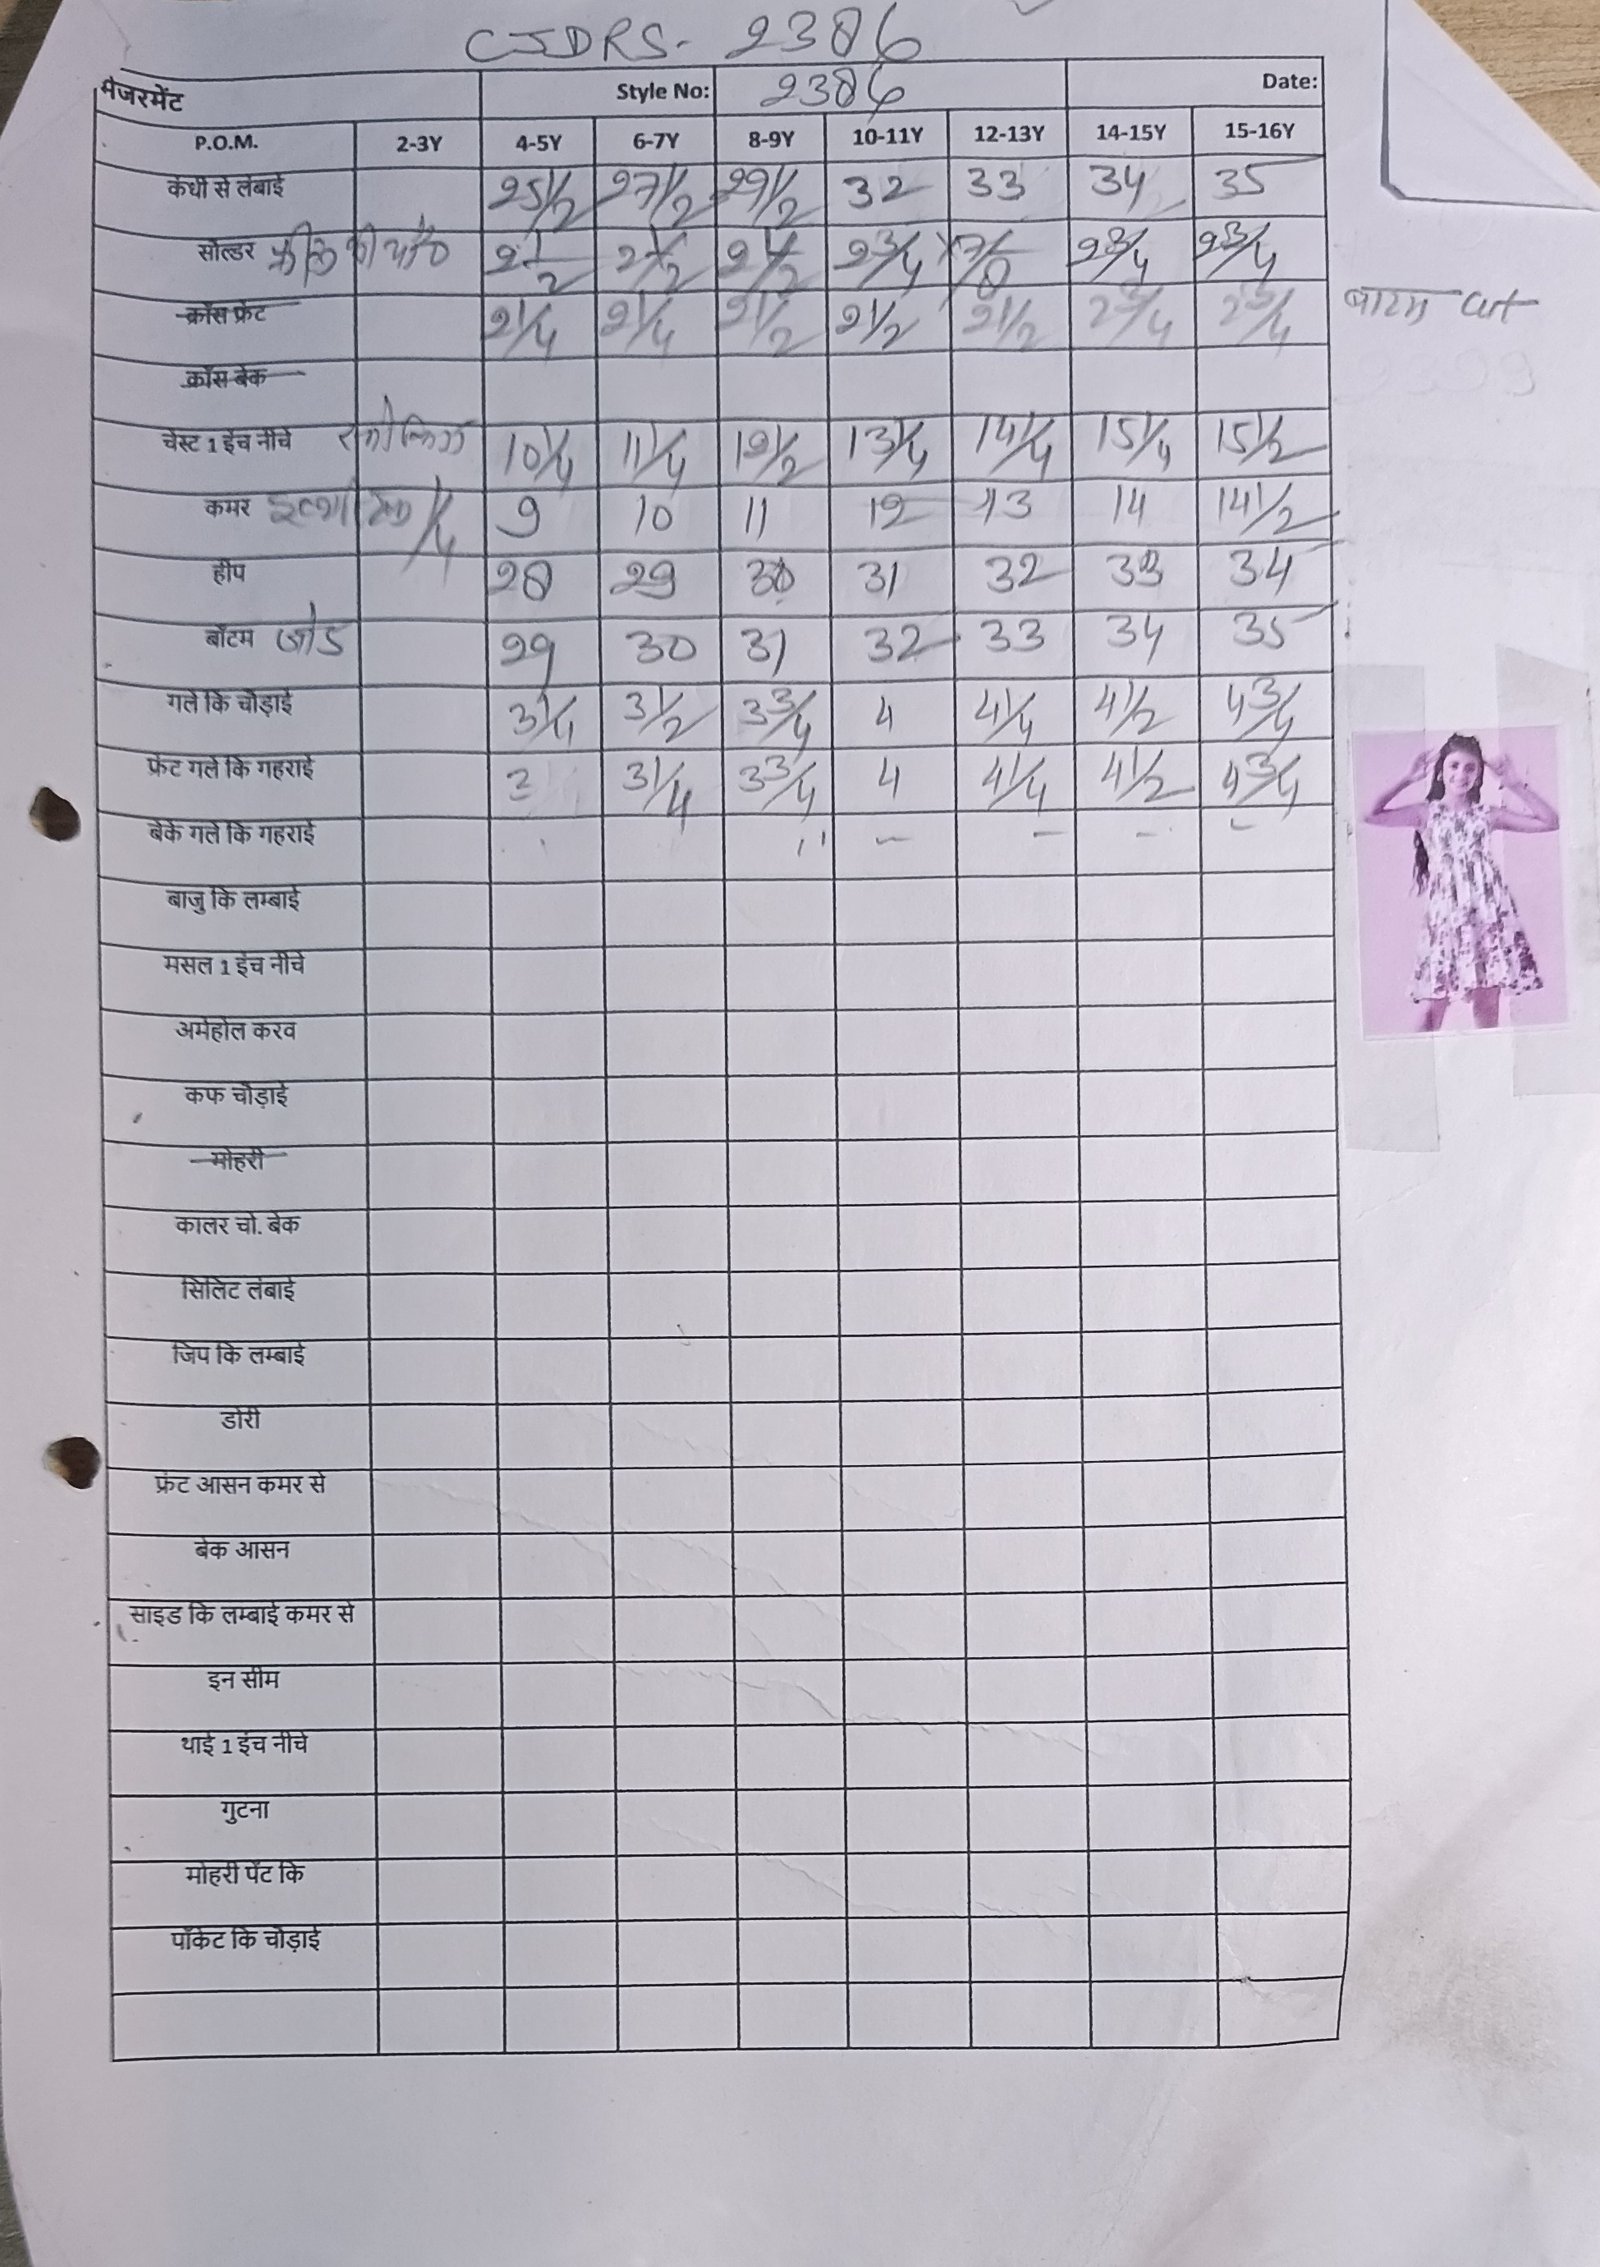 CJDRS- 2386
मेजरमेंट Style No: 2386 Date:
P.O.M. 2-3Y 4-5Y 6-7Y 8-9Y 10-11Y 12-13Y 14-15Y 15-16Y
कंधी से लंबाई 25 1/2 27 1/2 29 1/2 32 33 34 35
सोल्डर 2 1/2 2 1/2 2 1/2 2 3/4 7/8 2 3/4 2 3/4
क्रॉस फ्रंट 2 1/4 2 1/4 2 1/2 2 1/2 2 1/2 2 3/4 2 3/4 बाटम cut
क्रॉस बेक
चेस्ट 1 इंच नीचे 10 1/4 11 1/4 12 1/2 13 1/4 14 1/4 15 1/4 15 1/2
कमर 1/4 9 10 11 12 13 14 14 1/2
हीप 28 29 30 31 32 33 34
बॉटम जोड 29 30 31 32 33 34 35
गले कि चौड़ाई 3 1/4 3 1/2 3 3/4 4 4 1/4 4 1/2 4 3/4
फ्रंट गले कि गहराई 3 3 1/4 3 3/4 4 4 1/4 4 1/2 4 3/4
बेके गले कि गहराई
बाजु कि लम्बाई
मसल 1 इंच नीचे
अर्महोल करव
कफ चौड़ाई
मोहरी
कालर चो. बेक
सिलिट लंबाई
जिप कि लम्बाई
डोरी
फ्रंट आसन कमर से
बेक आसन
साइड कि लम्बाई कमर से
इन सीम
थाई 1 इंच नीचे
गुटना
मोहरी पेंट कि
पॉकेट कि चौड़ाई